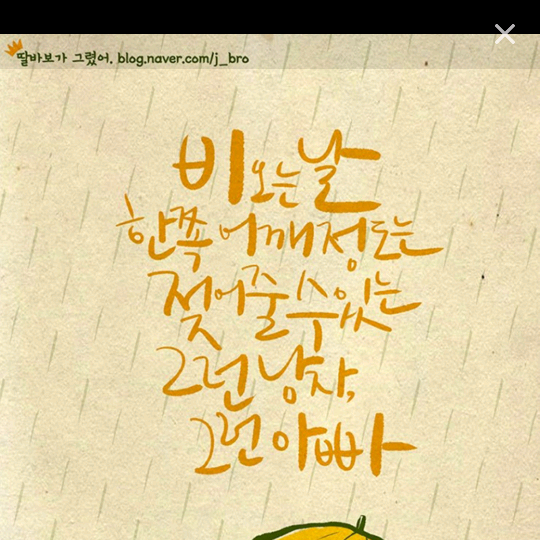 딸바보가 그렸어. blog.naver.com/j_bro
비오는날
한쪽 어깨 정도는
젖어줄 수 있는
그런 남자,
그런 아빠